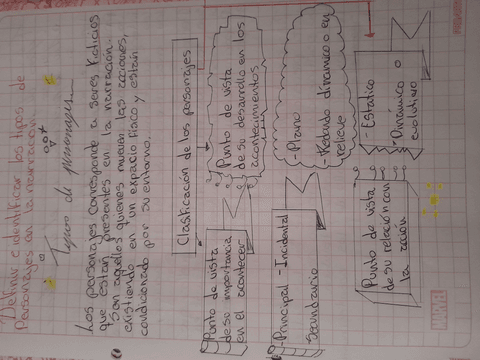 Definir e identificar los tipos de
personajes en la narración.
Tipos de personajes
Los personajes corresponde a seres ficticios
que están presentes en la narración.
Son aquellos quienes mueven las acciones,
existiendo en un espacio físico y están
condicionado por su entorno.
Clasificación de los personajes
Punto de vista
de su importancia
en el acontecer
Punto de vista
de su desarrollo en los
acontecimientos
Punto de vista
de su relación con
la acción
Principal - Incidental
Secundario
- Plano
- Redondo dinámico o en
relieve
- Estático
- Dinámico o
evolutivo